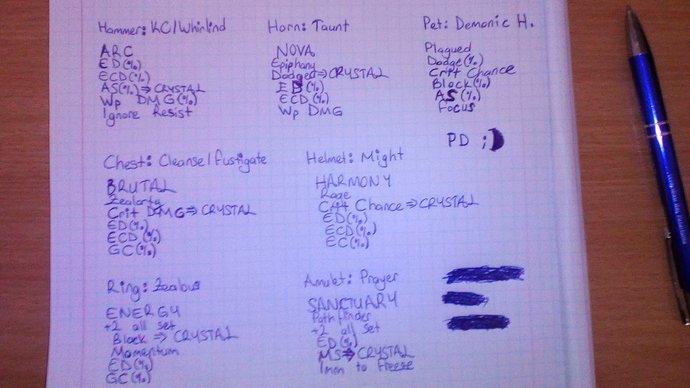 Hammer: KC/Whirlind
ARC
ED(%)
ECD(%)
AS(%)⇒CRYSTAL
Wp DMG(%)
Ignore Resist
Horn: Taunt
NOVA
Epiphany
Dodged⇒CRYSTAL
ED(%)
ECD(%)
Wp DMG
Pet: Demonic H.
Plagued
Dodge(%)
Crit Chance
Block(%)
AS(%)
Focus
PD ;)
Chest: Cleanse/Fustigate
BRUTAL
Zealarta
Crit DMG⇒CRYSTAL
ED(%)
ECD(%)
GC(%)
Helmet: Might
HARMONY
Rage
Crit Chance⇒CRYSTAL
ED(%)
ECD(%)
EC(%)
Ring: Zealous
ENERGY
+2 all set
Block⇒CRYSTAL
Momentum
ED(%)
GC(%)
Amulet: Prayer
SANCTUARY
Pathfinder
+2 all set
ED(%)
MS⇒CRYSTAL
Imm to Freese